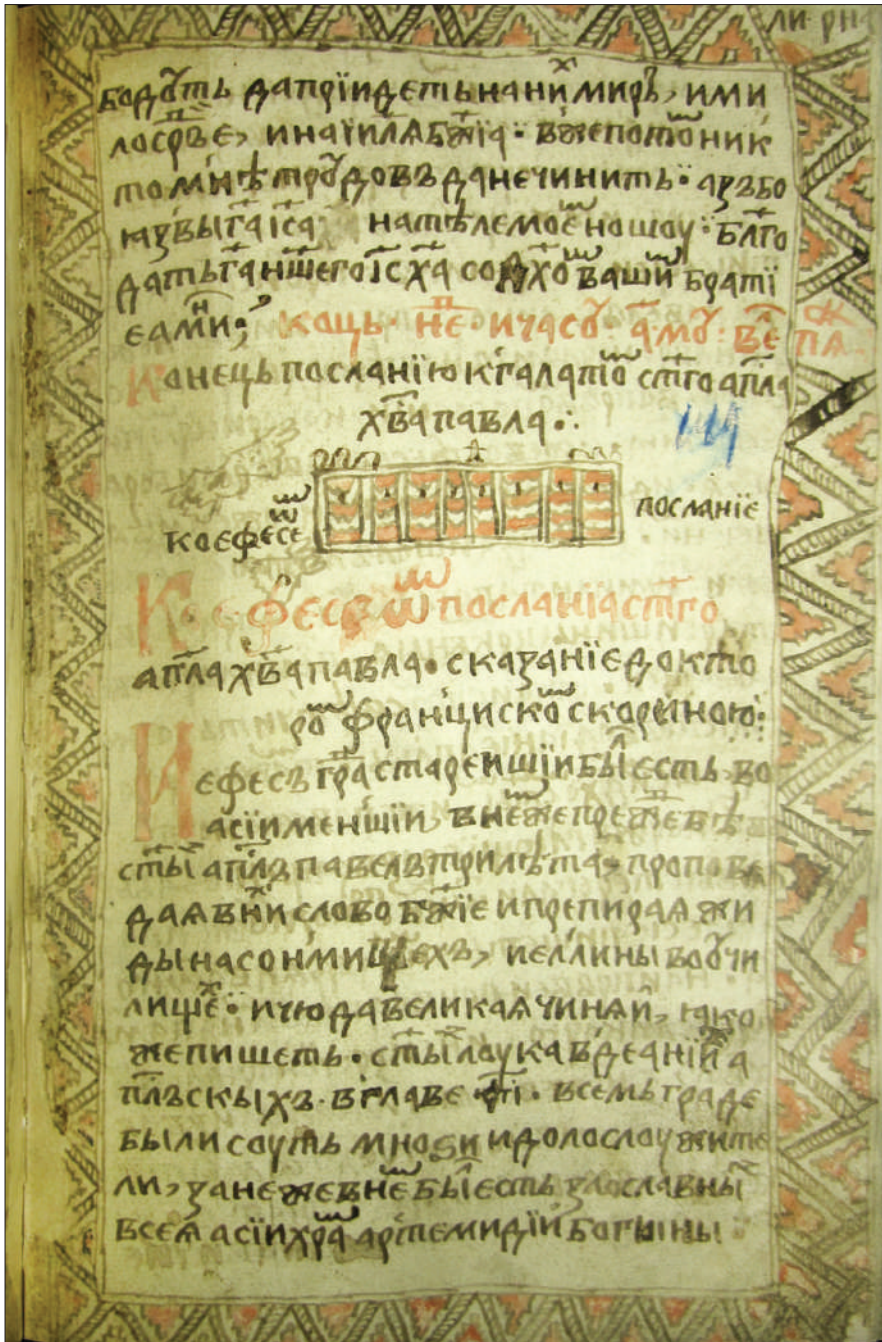 бодꙋть да прїидеть на ни́х миръ, и ми
лосрⷣъе, и на їи҃лѧ бж҃їа · вжⷷе потоⷨ ник
то мнѣ трꙋдовъ да не чинить · азъ бо
ꙗзвы га҃ іс҃а на тѣле моеⷨ ношоу · бл҃го
дать га҃ нш҃его і҃с х҃а со дх҃оⷨ вашиⷨ братї
е аⷨми́н ⁘ коць · нⷣе · и часꙋ · а҃ · мꙋ · вⷷе
Конець посланїю к галатоⷨ ст҃го ап҃ла
хв҃а павла ⁘
ко ефесеѡⷨ посланїе
Ко ефесеѡⷨ посланїа ст҃го
ап҃ла хв҃а павла · сказанїе докто
роⷨ франциском скориною ·
И ефесъ граⷣ стареишїи былⷧ есть во
асїи меншїи, в неⷨже преже
ст҃ыи ап҃лъ павелъ три лѣта, пропове
даѧ в ниⷯ слово бж҃їе и препираѧ жи
ды на сонмищехъ, и еллины во ꙋчи
лищеⷯ · и чюда великаѧ чинѧи, ꙗко
же пишеть · ст҃ыи лоука в деѧнїиⷯ а
п҃лъскыхъ · в главе · ѳ҃і · в семь граде
были соуть мноѕи идолослоужите
ли, занеже в неⷨ былⷧ есть ѕлославныи
всеѧ асїи храⷨ артемидїи богыны